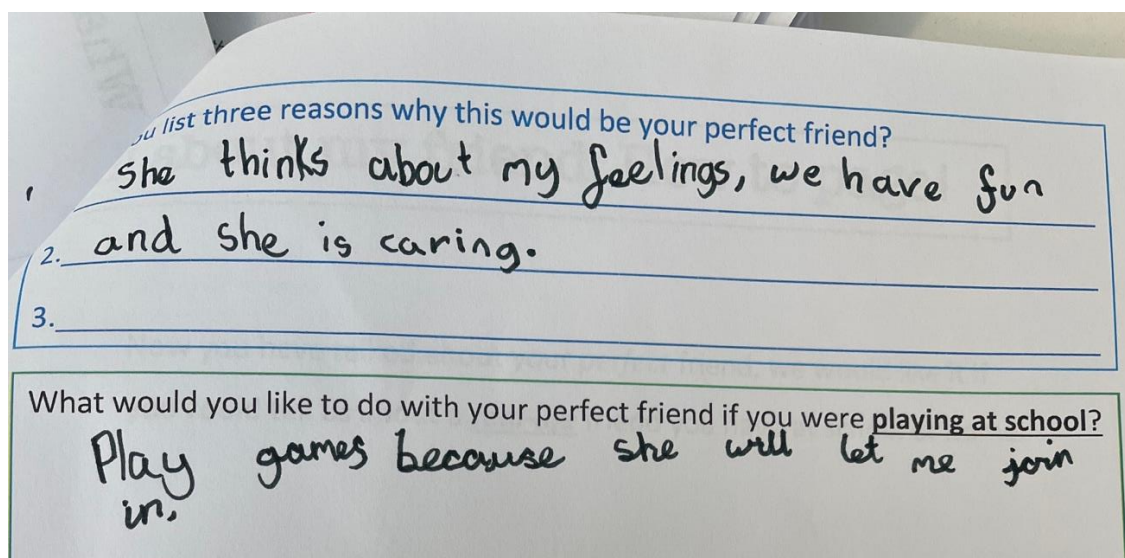 list three reasons why this would be your perfect friend?
she thinks about my feelings, we have fun
2. and she is caring.
3.
What would you like to do with your perfect friend if you were playing at school?
Play games because she will let me join
in.